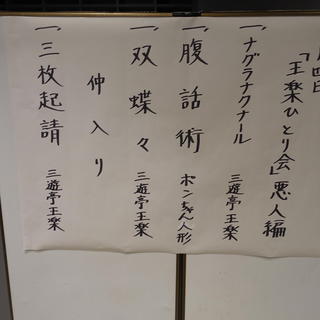 月四日
「王楽ひとり会」悪人編
一、ナグラナクナール 三遊亭王楽
一、腹話術 ポンちゃん人形
一、双蝶々 三遊亭王楽
仲入り
一、三枚起請 三遊亭王楽